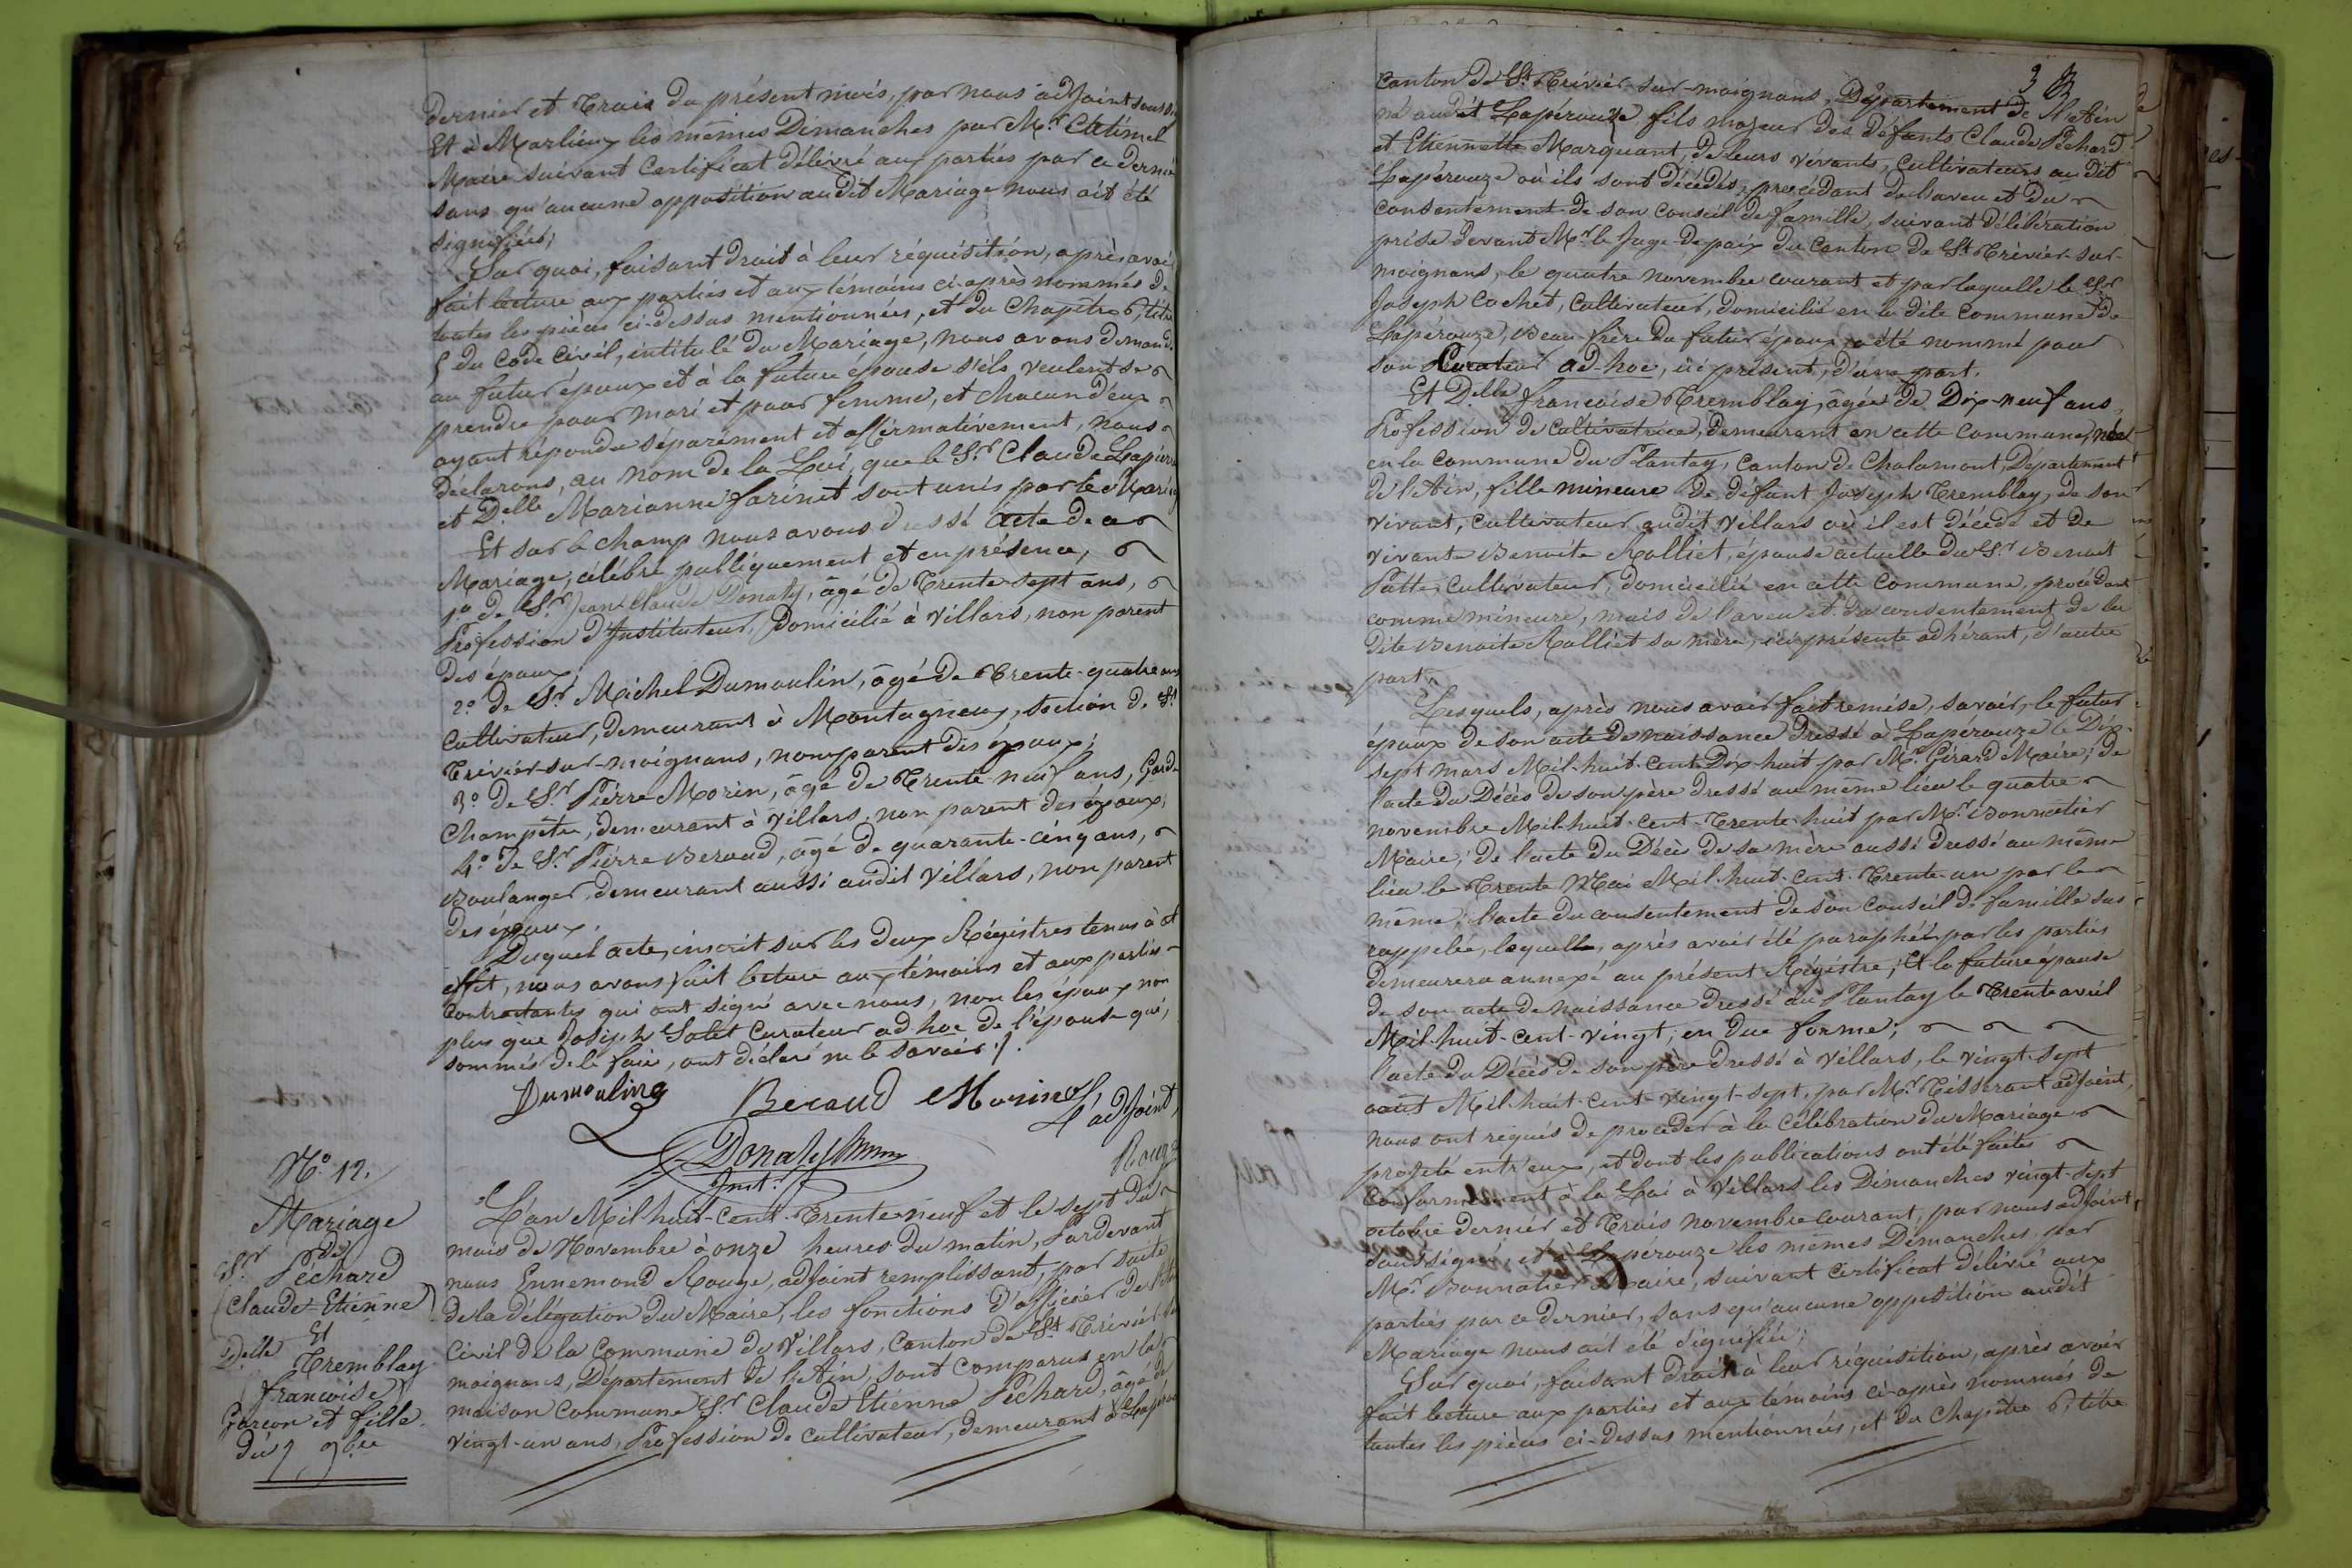 dernier et Trois du présent mois, par nous adjoint
Et à Marlieux les mêmes Dimanches par Mr.
Maire suivant Certificat délivré aux parties par ce dernier
sans qu'aucune opposition audit Mariage nous ait été
signifiées;
Sur quoi, faisant droit à leur réquisition, après avoir
fait lecture aux parties et aux témoins ci-après nommés de
toutes les pièces ci-dessus mentionnées, et du Chapitre 6, titre
5 du Code Civil, intitulé du Mariage, nous avons demandé
au futur époux et à la future épouse s'ils veulent se
prendre pour mari et pour femme, et chacun d'eux
ayant répondu séparément et affirmativement, nous
déclarons, au nom de la Loi, que le Sr. Claude
et Delle Marianne farinet sont unis par le Mariage
Et sur le champ nous avons dressé acte de ce
Mariage, célébré publiquement et en présence,
1º. de Sr. Jean-Claude Donaty, âgé de Trente-sept ans,
Profession d'Instituteur, Domicilié à Villars, non parent
des époux;
2º. de Sr. Michel Dumoulin, âgé de Trente-quatre ans
Cultivateur, demeurant à Montagneux, section de St.
Trivier-sur-moignans, non parent des époux;
3º. de Sr. Pierre Morin, âgé de Trente-neuf ans, Garde
Champêtre, demeurant à Villars, non parent des époux;
4º. de Sr. Pierre Beraud, âgé de quarante-cinq ans,
Boulanger, demeurant aussi audit Villars, non parent
des époux.
Duquel acte, inscrit sur les deux Régistres tenus à cet
effet, nous avons fait lecture aux témoins et aux parties
contractantes qui ont signé avec nous, non les époux non
plus que Joseph Curateur ad hoc de l'épouse qui,
sommés de le faire, ont déclaré ne le savoir ./.
Dumouling Beraud Morin
L'adjoint,
Donaty
Inst. Rouge
Nº. 12.
Mariage
de
Sr. Péchard
(Claude-Etienne)
Et
Delle Tremblay
(françoise)
Garçon et fille.
du 7 9bre
L'an Mil huit-cent-Trente-neuf et le sept du
mois de Novembre à onze heures du matin, Pardevant
nous Ennemond Rouge, adjoint remplissant, par suite
de la délégation du Maire, les fonctions d'officier de l'Etat
Civil de la Commune de Villars, Canton de St. Trivier-sur
moignans, Département de l'Ain, sont comparus en la
maison Commune Sr. Claude Etienne Péchard, âgé de
vingt-un ans, Profession de Cultivateur, demeurant à Lapérouze
33
Canton de St. Trivier-sur-moignans, Département de l'Ain
né audit Lapérouze fils majeur des défunts Claude Péchard
et Etiennette Marquant, de leurs vivants, Cultivateurs audit
Lapérouze où ils sont décédés, procédant de l'aveu et du
consentement de son Conseil de famille, suivant délibération
prise devant Mr. le Juge-de-paix du Canton de St. Trivier-sur-
moignans, le quatre novembre courant et par laquelle le Sr.
Joseph Cochet, Cultivateur, domicilié en la dite commune de
Lapérouze, Beau-frère du futur époux a été nommé pour
son Curateur ad-hoc, ici présent, d'une part.
Et Delle françoise Tremblay, âgée de Dix-neuf ans,
Profession de Cultivatrice, demeurant en cette Commune, née
en la Commune du Plantay, Canton de Chalamont, Département
de l'Ain, fille mineure de défunt Joseph Tremblay, de son
vivant, Cultivateur audit Villars où il est décédé et de
vivante Benoite Rolliet, épouse actuelle du Sr. Benoit
Patte, Cultivateur, domiciliée en cette Commune, procédant
comme mineure, mais de l'aveu et du consentement de la
dite Benoite Rolliet sa mère, ici présente adhérant, d'autre
part.
Lesquels, après nous avoir fait remise, savoir, le futur
époux de son acte de naissance dressé à Lapérouze le Dix-
sept mars Mil-huit-cent-Dix-huit par Mr. Gérard Maire; de
l'acte du Décès de son père dressé au même lieu le quatre
novembre Mil-huit-cent-Trente-huit par Mr. Bonnatier
Maire; de l'acte du Décès de sa mère aussi dressé au même
lieu le Trente Mai Mil-huit-cent-Trente-un par le
même; l'acte du consentement de son Conseil de famille sus
rappelée, laquelle, après avoir été paraphée par les parties
demeurera annexé au présent Régistre; Et la future épouse
de son acte de naissance dressé au Plantay le Trente avril
Mil-huit-cent-vingt, en due forme;
l'acte du Décès de son père dressé à Villars, le vingt-sept
août Mil-huit-cent-vingt-sept, par Mr. Tisserant adjoint,
nous ont requis de procéder à la Célébration du Mariage
projeté entr'eux, et dont les publications ont été faites
conformément à la Loi à Villars les Dimanches vingt-sept
octobre dernier et Trois novembre courant, par nous adjoint
soussigné et à Lapérouze les mêmes Dimanches, par
Mr. Bonnatier Maire, suivant Certificat délivré aux
parties par ce dernier, sans qu'aucune opposition audit
Mariage nous ait été signifiée;
Sur quoi, faisant droit à leur réquisition, après avoir
fait lecture aux parties et aux témoins ci-après nommés de
toutes les pièces ci-dessus mentionnées, et du Chapitre 6, titre